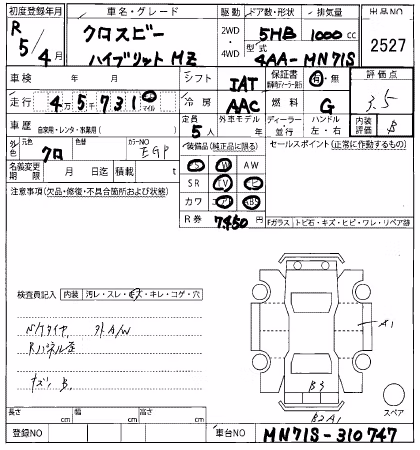 初度登録年月 車名・グレード 駆動 ドア数・形状 排気量 出品NO
R 5/4月 クロスビー ハイブリット MZ 2WD・4WD 5HB 1000cc 2527
型式 4AA-MN71S
車検 年 月 シフト IAT 保証書 有・無 評価点
走行 45731 km マイル 冷房 AAC 燃料 G 3.5
車歴 自家用・レンタ・事業用( ) 定員 5人 外車モデル ディーラー・並行 ハンドル 左・右 内装評価 B
外色 元色 クロ 替色 カラーNO 装備品(純正品に限る) セールスポイント(正常に作動するもの)
名義変更期限 月 日迄 積載 t S W AW
注意事項(欠品・修復・不具合箇所および状態) SR TV
カワ ABS
R券 7450 円
Fガラス トビ石・キズ・ヒビ・ワレ・リペア跡
検査員記入 内装 汚レ・スレ・キズ・キレ・コゲ・穴
A1
B3
B2A1
スペア
長さ cm 幅 cm 高さ cm
登録NO 車台NO MN71S-310747